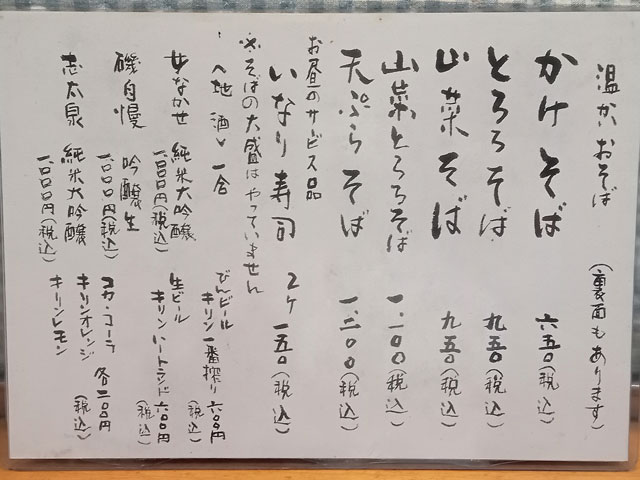 温かいおそば （裏面もあります）
かけそば 六五〇（税込）
とろろそば 九五〇（税込）
山菜そば 九五〇（税込）
山菜とろろそば 一、一〇〇（税込）
天ぷらそば 一、三〇〇（税込）
お昼のサービス品
いなり寿司 2ケ 一五〇（税込）
※そばの大盛はやっていません
〈地酒〉 一合
女なかせ 純米大吟醸 一、〇〇〇円（税込）
磯自慢 吟醸生 一、〇〇〇円（税込）
志太泉 純米大吟醸 一、〇〇〇円（税込）
びんビール
キリン一番搾り 六〇〇円（税込）
生ビール
キリンハートランド 六〇〇円（税込）
コカ・コーラ
キリンオレンジ 各二〇〇円（税込）
キリンレモン